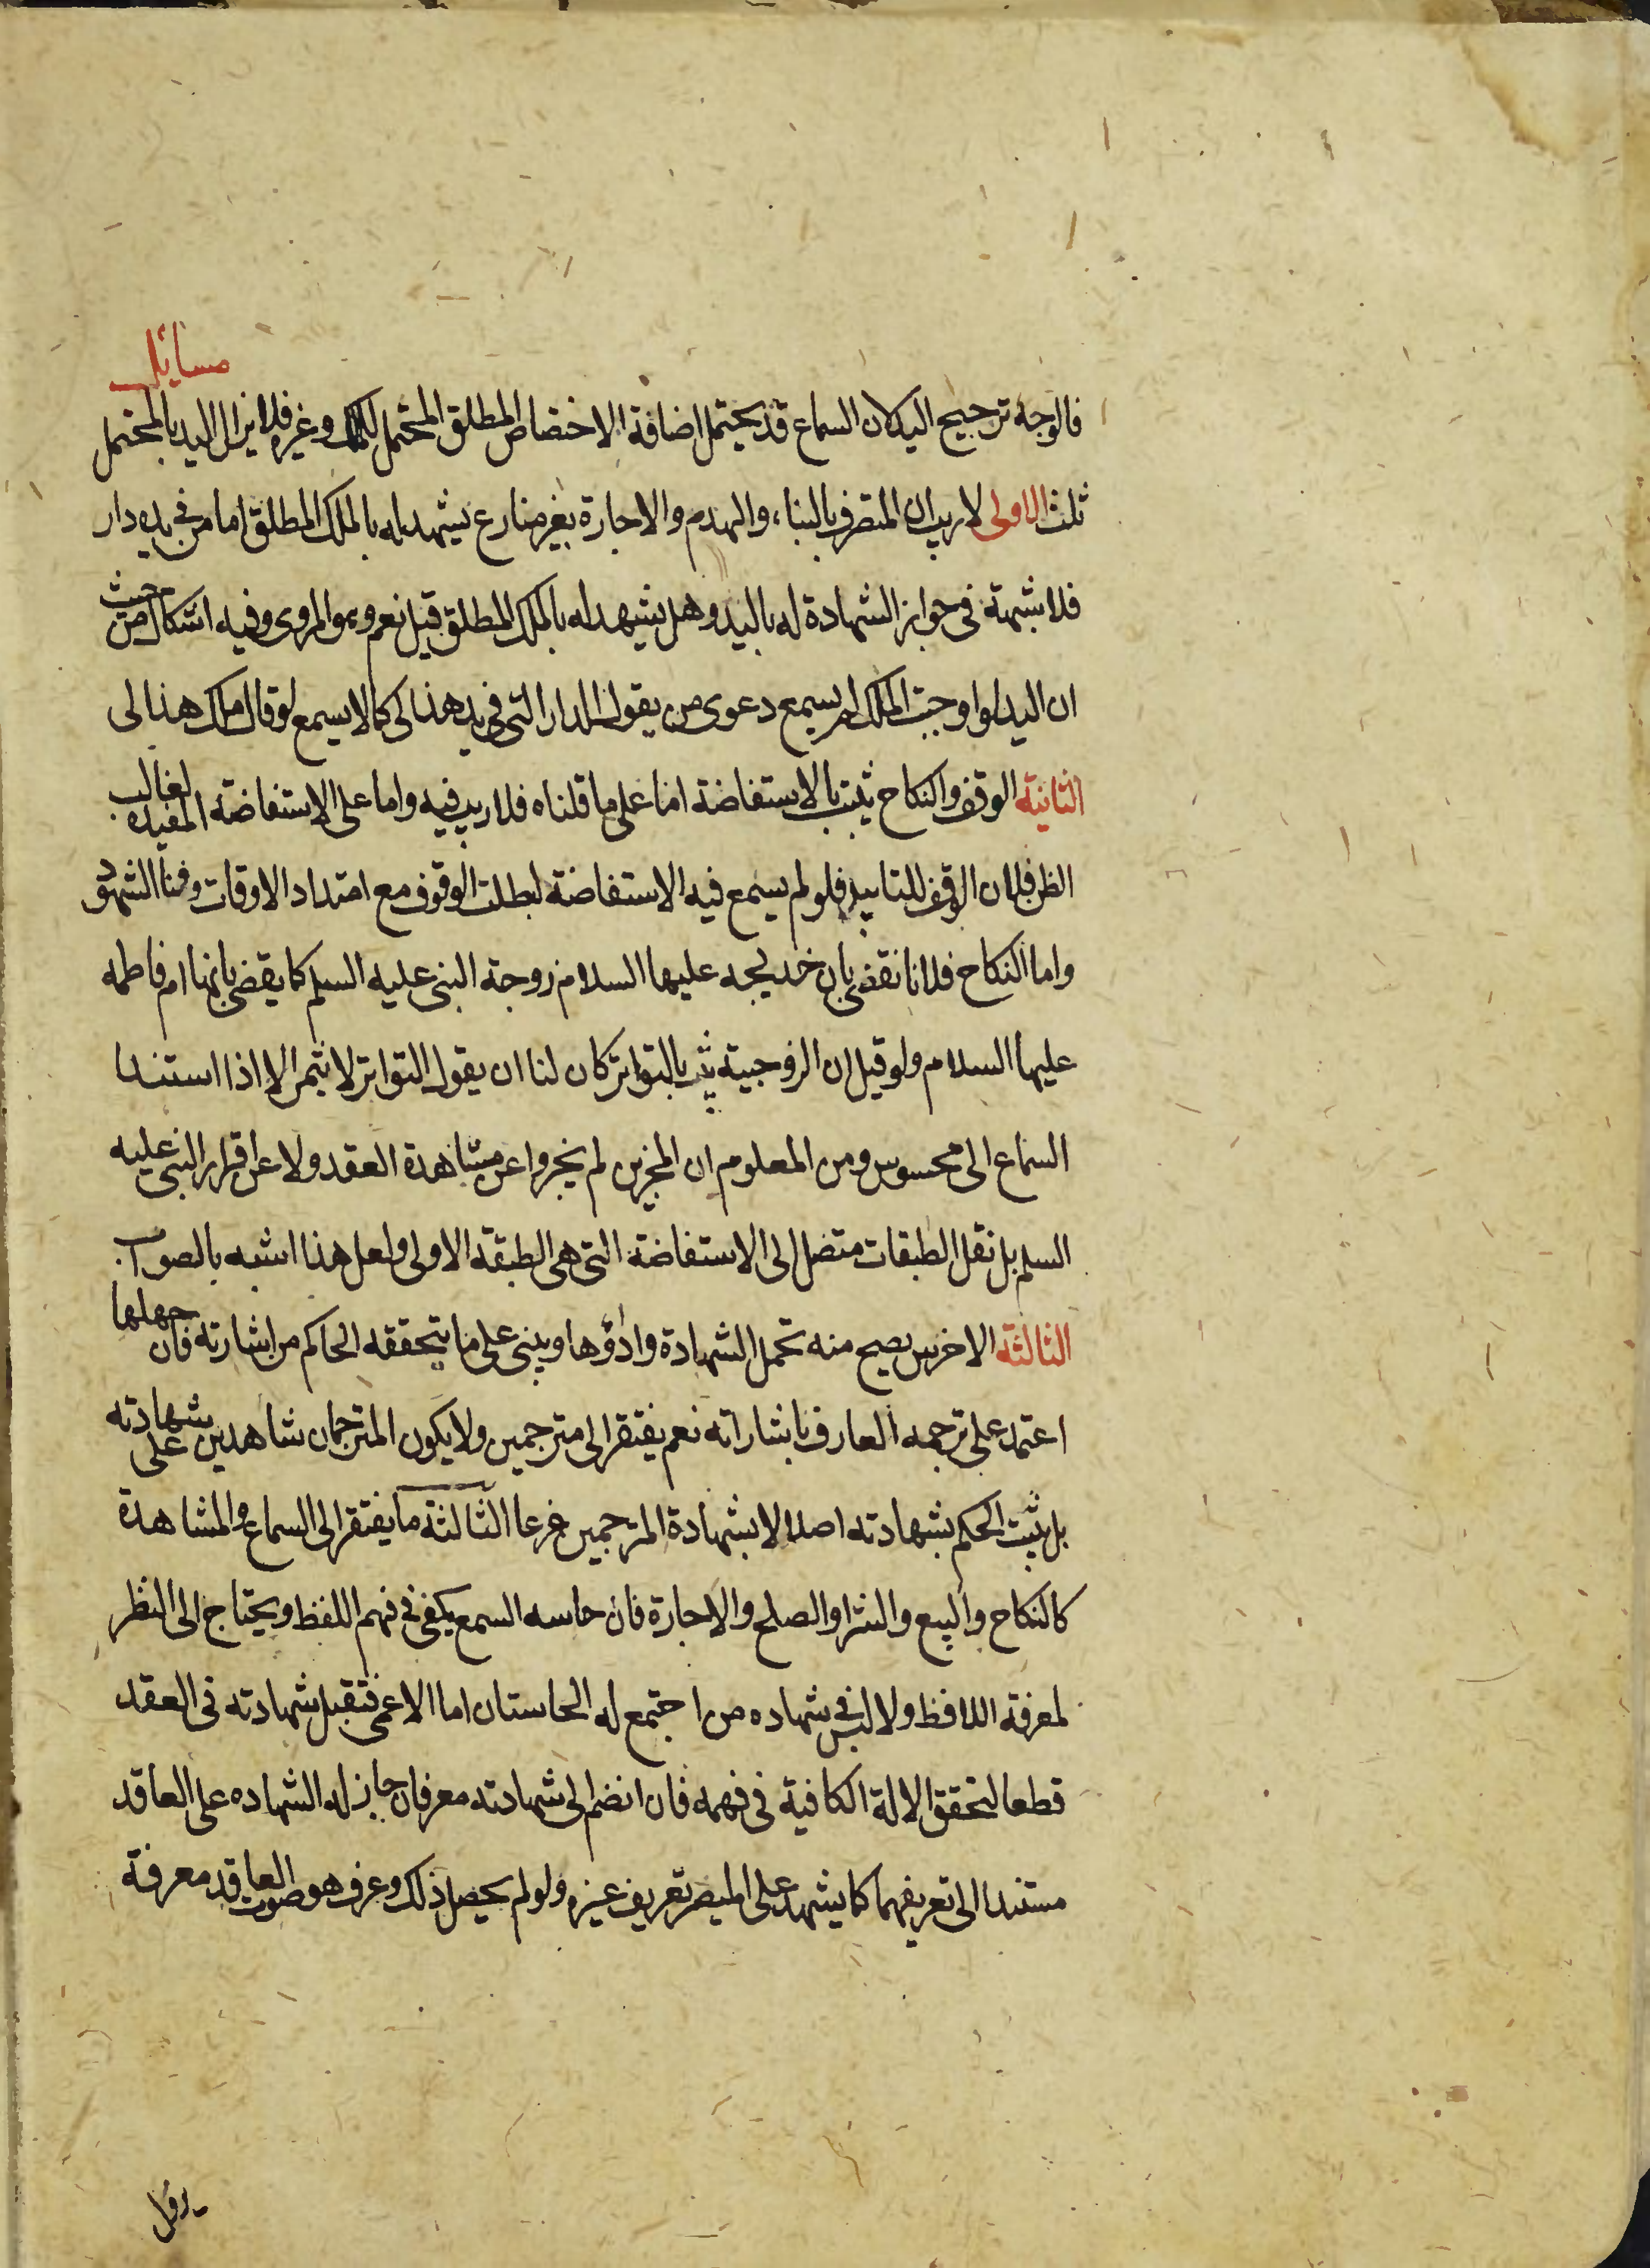 مسائل
فالوجه ترجيح اليد لان السماع قد يحتمل اضافة الاختصاص المطلق المحتمل للملك وغيره فلا يزال اليد بالمحتمل
ثلث الاولى لا ريب ان المتصرف بالبناء والهدم والاجارة بغير منازع يشهد له بالملك المطلق اما من في يده دار
فلا شبهة في جواز الشهادة له باليد وهل يشهد له بالملك المطلق قيل نعم وهو المروى وفيه اشكال من حيث
ان اليد لو اوجبت الملك لم يسمع دعوى من يقول الدار التى في يد هذا لى كما لا يسمع لو قال ملك هذا لى
الثانية الوقف والنكاح يثبت بالاستفاضة اما على ما قلناه فلا ريب فيه واما على الاستفاضة المفيدة لغالب
الظن فلان الوقف للتابيد فلو لم يسمع فيه الاستفاضة لبطلت الوقوف مع امتداد الاوقات وفنا الشهود
واما النكاح فلانا نقضى بان خديجه عليها السلام زوجة النبى عليه السلم كما يقضى بانها ام فاطمه
عليها السلام ولو قيل ان الزوجية يثبت بالتواتر كان لنا ان يقول التواتر لا يثمر الا اذا استندا
السماع الى محسوس ومن المعلوم ان المخبرين لم يخبروا عن مشاهدة العقد ولا عن اقرار النبى عليه
السلم بل نقل الطبقات متصل الى الاستفاضة التى هى الطبقة الاولى ولعل هذا اشبه بالصواب
الثالثة الاخرس يصح منه تحمل الشهادة واداؤها ويبنى على ما يتحققه الحاكم من اشارته فان جهلها
اعتمد على ترجمه العارف باشاراته نعم يفتقر الى مترجمين ولا يكون المترجمان شاهدين على شهادته
بل يثبت الحكم بشهادته اصلا لا بشهادة المترجمين فرعا الثالثة ما يفتقر الى السماع والمشاهدة
كالنكاح والبيع والشرا والصلح والاجارة فان حاسه السمع يكفى في فهم اللفظ ويحتاج الى النظر
لمعرفة اللافظ ولا لبس في شهاده من اجتمع له الحاستان اما الاعمى فتقبل شهادته فى العقد
قطعا لتحقق الالة الكافية فى فهمه فان انضم الى شهادته معرفان جاز له الشهاده على العاقد
مستندا الى تعريفهما كما يشهد على المبصر تعريف غيره ولو لم يحصل ذلك وعرف هو صوت العاقد معرفة